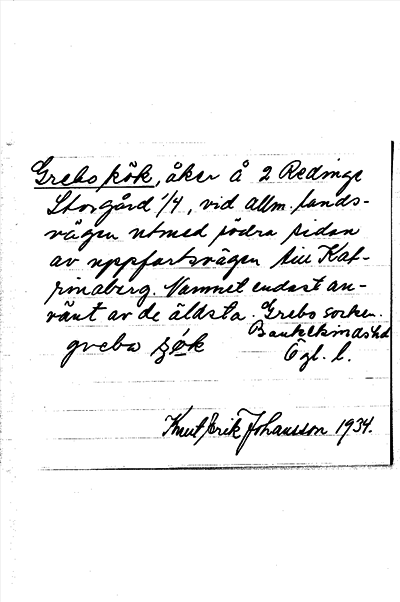 Grebo kök, åker å 2 Redinge
Storgård 1/4, vid allm. lands-
vägen utmed södra sidan
av uppfartsvägen till Kat-
rineberg. Namnet endast an-
vänt av de äldsta. Grebo socken.
Bankekinds hd
greba
Ögl. l.
Knut Erik Johansson 1934.